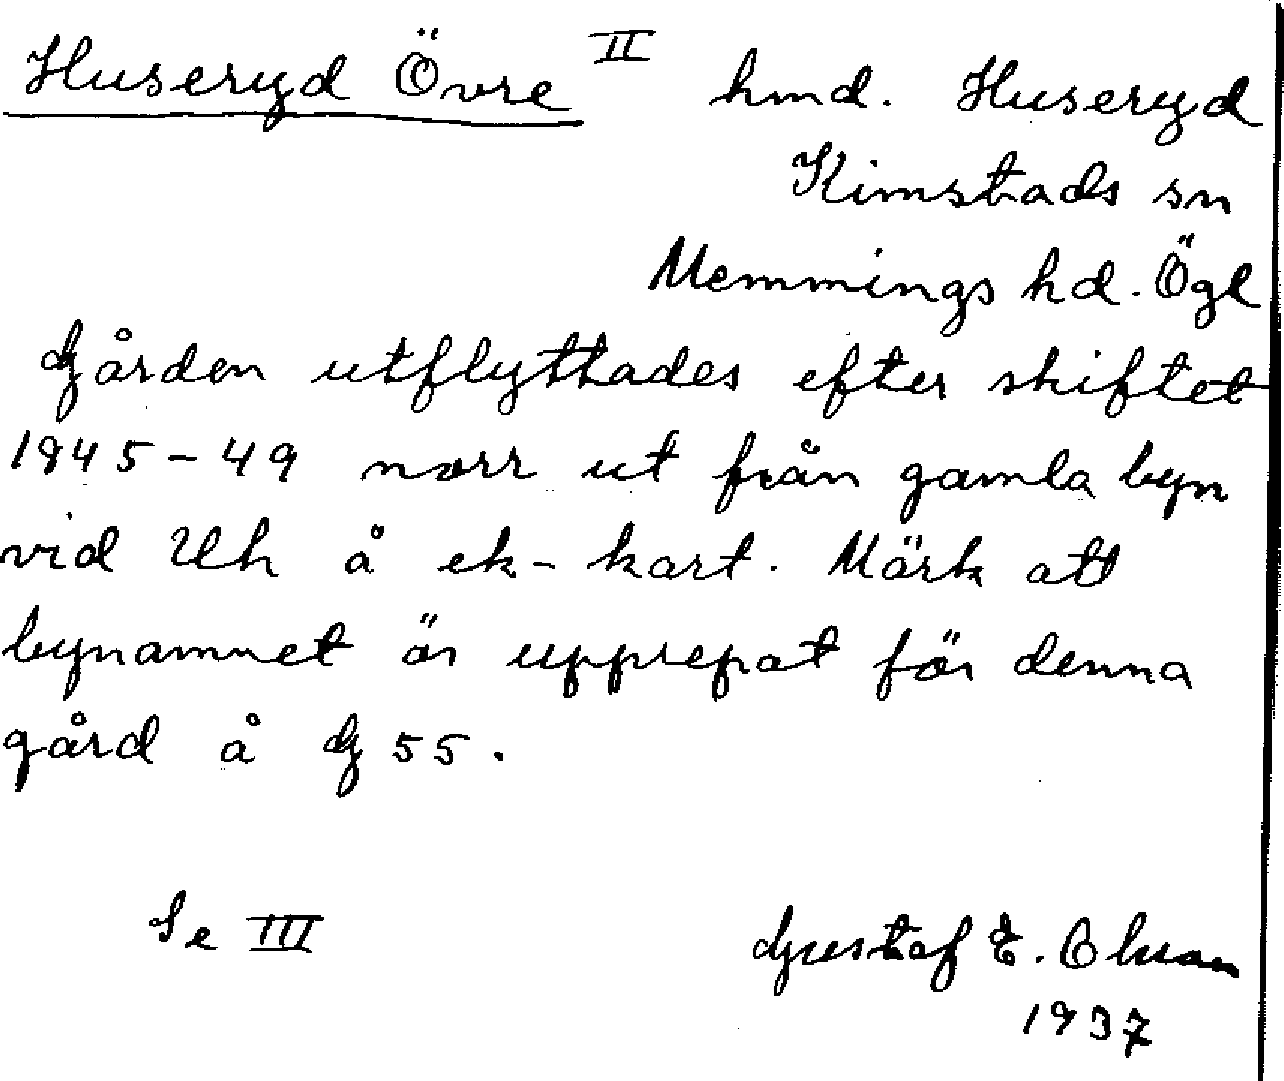 Huseryd Övre II hmd. Huseryd
Kimstads sn
Memmings hd. Ögl
Gården utflyttades efter skiftet
1845-49 norr ut från gamla byn
vid Uh å ek-kart. Märk att
bynamnet är upprepat för denna
gård å G 55.
Se III
Gustaf E. Olson
1937